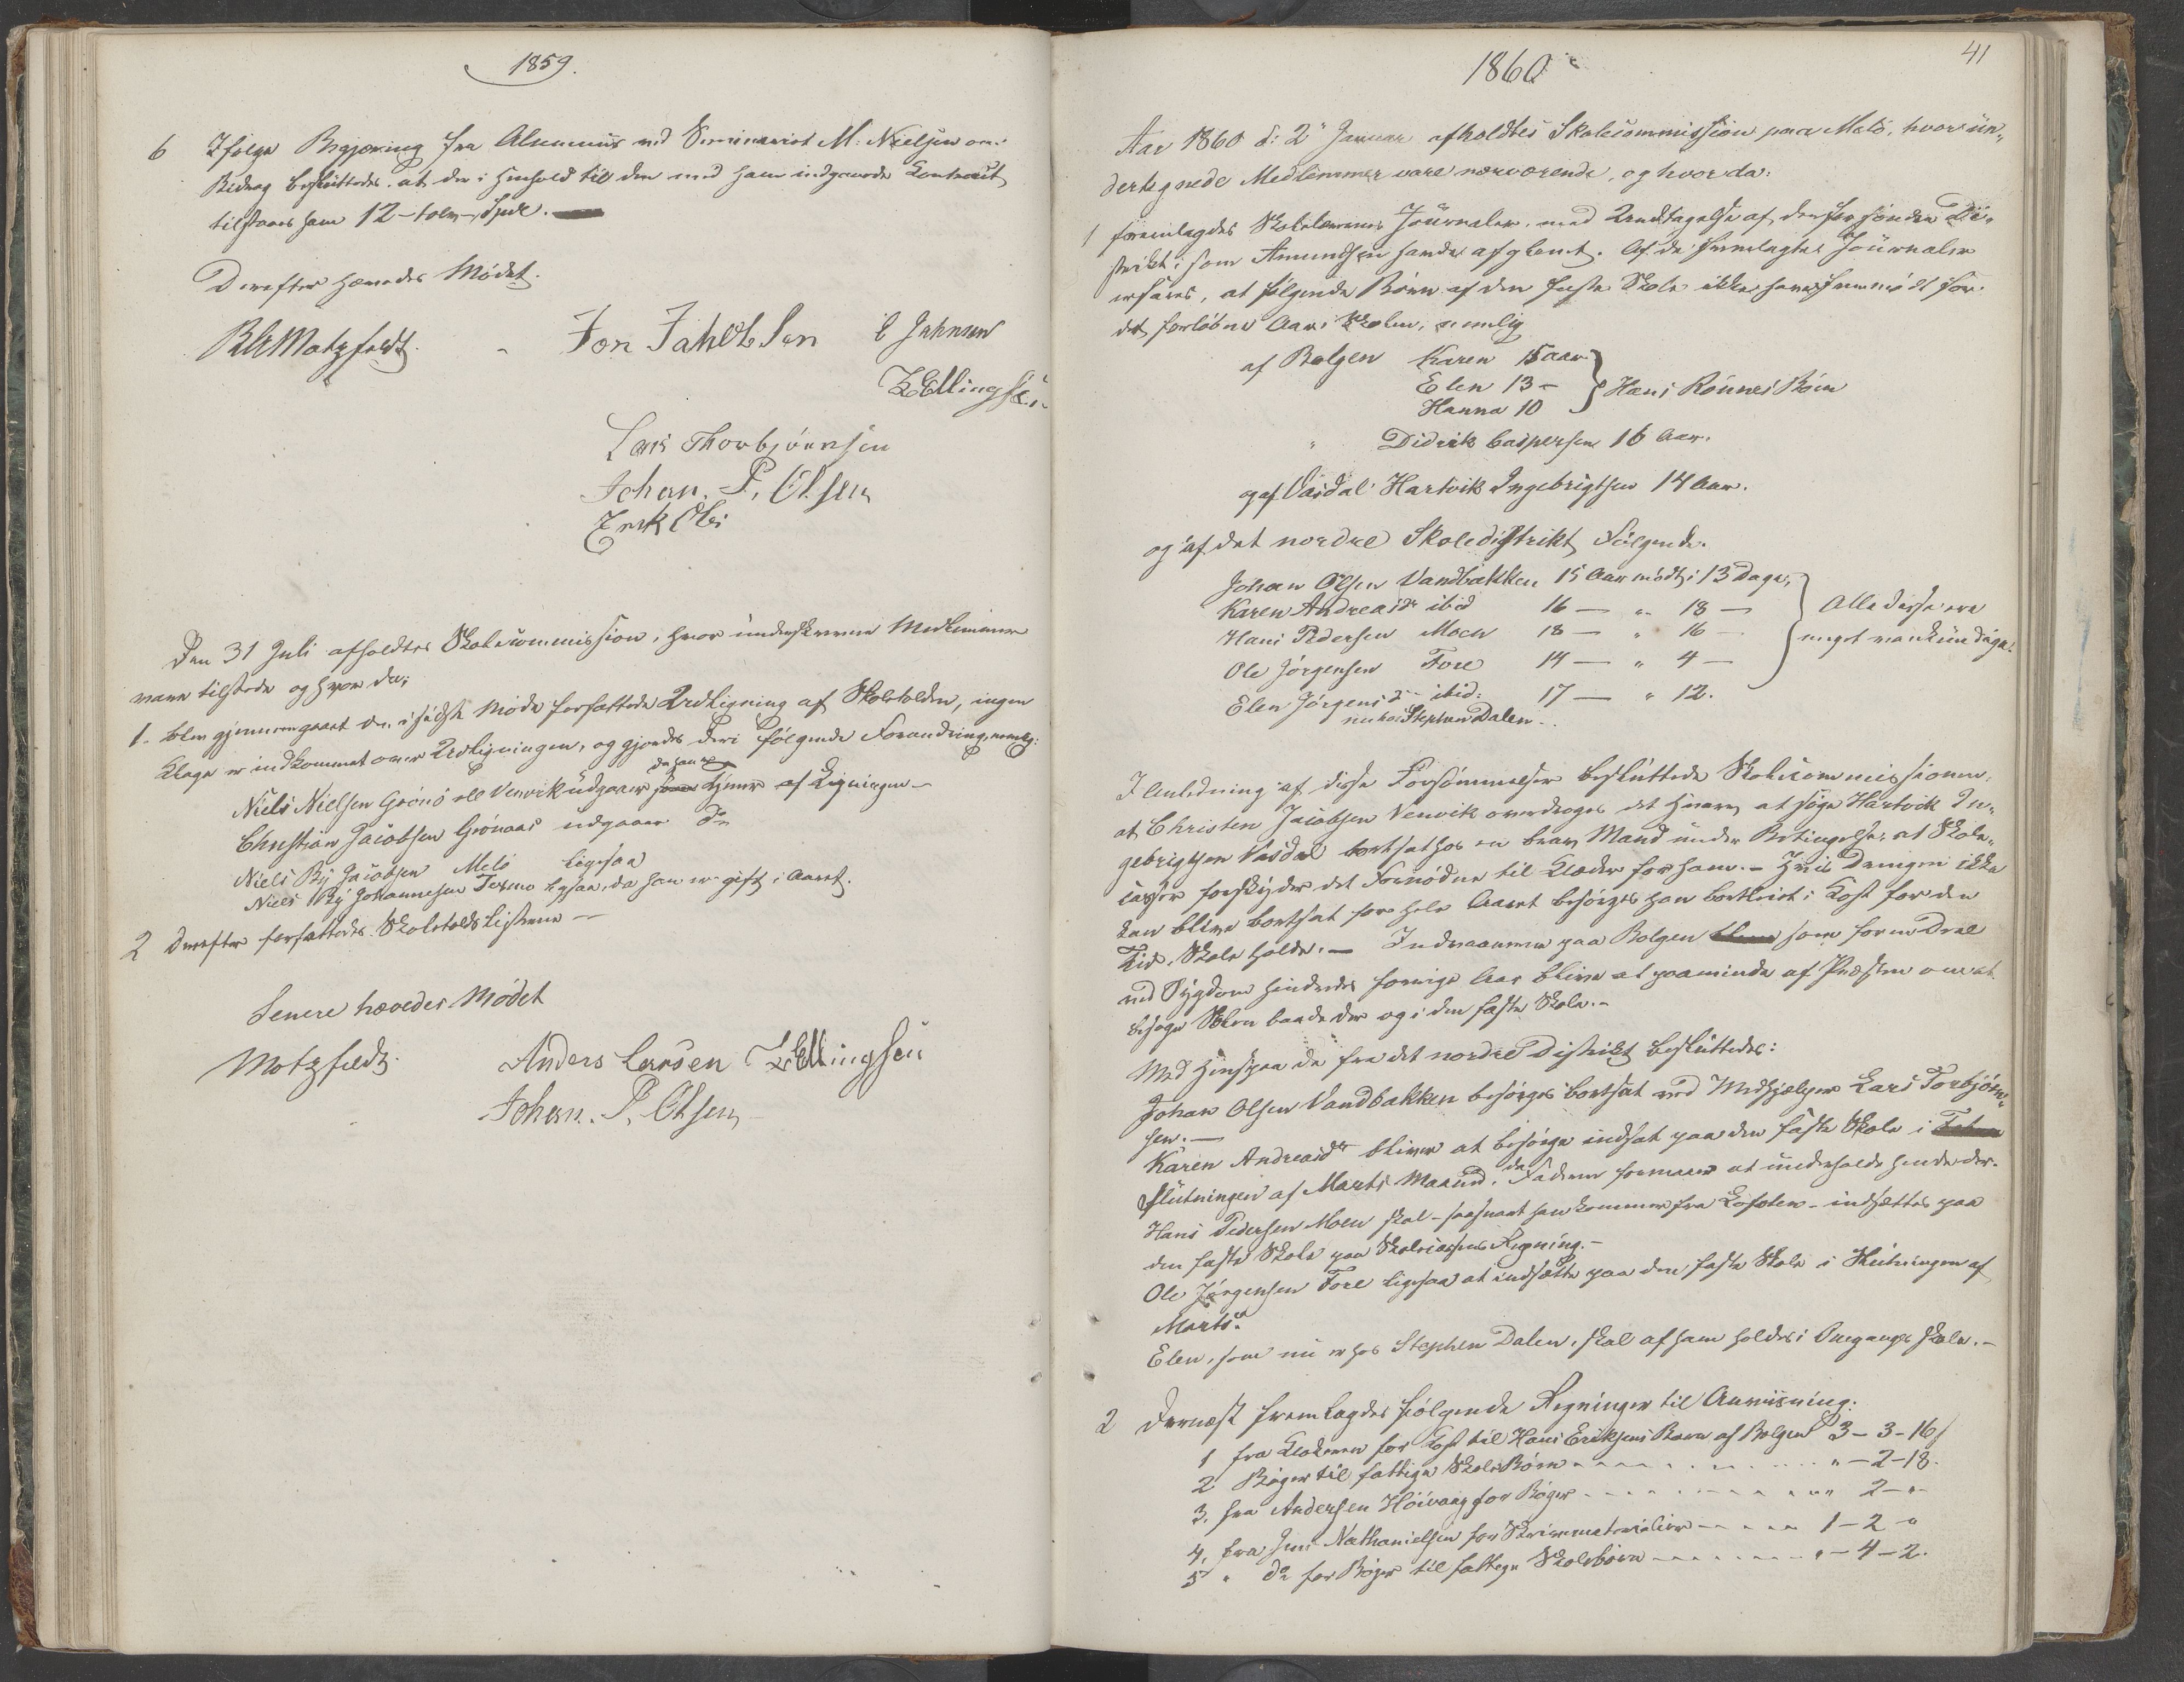 1859.
6 Ifølge Begjæring fra Alumnus ved Seminariet M. Nielsen om
Bidrag besluttedes, at der i Henhold til den med ham indgaaede Contract
tilstaaes ham 12 - tolv - Spdl.
Derefter hævedes Mødet.
Motzfeldt. Jon Jakobsen C Johnsen
Z Ellingsen
Lars Thorbjørnsen
Johan. P. Olsen
Erik Ols:
Den 31 Juli afholdtes Skolecommission, hvor underskrevne Medlemmer
vare tilstede og hvor da:
1. blev gjennemgaaet den i sidste Møde forfattede Udligning af Skoletolden, ingen
Klage er indkommet over Udligningen, og gjordes deri følgende Forandring, nemlig:
da han er
Niels Nielsen Grønø ell Venvik udgaaer som tjener af Ligningen -
Christian Jacobsen Grønaas udgaaer do
Niels By Jacobsen Melø ligesaa
Niels By Johannesen Texmo ligesaa, da han er gift i Aaret.
2 Derefter forfattedes Skoletolds Listerne -
Senere hævedes Mødet
Motzfeldt. Anders Larsen Z Ellingsen
Johan. P. Olsen
41
1860
Aar 1860 d: 2 Januar afholdtes Skolecommission paa Melø, hvor un-
dertegnede Medlemmer vare nærværende, og hvor da:
1 fremlagdes Skolelærernes Journaler, med Undtagelse af den for søndre Di-
strikt, som Amundsen havde afglemt. Af de fremlagte Journaler
erfares, at følgende Børn af den faste Skole ikke have fremmødt for
det forløbne Aar i Skolen, nemlig
af Bolgen Karen 15 Aar
Elen 13 - } Hans Rønnes Børn
Hanna 10
" Didrik Caspersen 16 Aar.
og af Vasdal Hartvik Ingebrigtsen 14 Aar.
og af det nordre Skoledistrikt Følgende.
Johan Olsen Vandbakken 15 Aar mødt i 13 Dage,
Karen Andreasdr ibid 16 — " 18 — Alle disse ere
Hans Pedersen Moen 18 — " 16 — meget vankundige.
Ole Jørgensen Fore 14 — " 4 —
Elen Jørgensdr ibid: 17 — " 12.
nu hos Stephen Dalen..
I Anledning af disse Forsømmelser besluttede Skolecommissionen,
at Christen Jacobsen Venvik overdroges det Hverv at søge Hartvik In-
gebrigtsen Vasdal bortsat hos en brav Mand under Betingelse, at Skole-
cassen forskyder det Fornødne til Klæder for ham. - Hvis Drengen ikke
kan blive bortsat for hele Aaret besørges han bortleiet i Kost for den
Tid, Skole holdes. — Indvaanerne paa Bolgen som formedelst
ved Sygdom hindredes forrige Aar bliver at paaminde af Præsten om at
besøge Skolen baade der og i den faste Skole. -
Med Hensyn da fra det nordre Distrikt besluttedes:
Johan Olsen Vandbakken besørges bortsat ved Medhjælper Lars Torbjørn-
sen. —
Karen Andreasdr bliver at besørge indsat paa den faste Skole i
Slutningen af Marts Maaned, da Faderen formaaer at underholde hende der.
Hans Pedersen Moen skal - saasnart han kommer fra Lofoten - indsættes paa
den faste Skole paa Skolecassens Regning. -
Ole Jørgensen Fore ligesaa at indsætte paa den faste Skole i Slutningen af
Marts.
Elen, som nu er hos Stephen Dalen, skal af ham holdes i Omgangsskolen. -
2 Dernæst fremlagdes følgende Regninger til Anviisning:
1 fra Klokeren for Kost til Hans Eriksens Barn af Bolgen 3 - 3 - 16
2 Bøger til fattige Skolebørn " - 2 - 18.
3. fra Andersen Høivaag for Bøger " 2 - "
4. fra Jens Nathanielsen for Skrivematerialier 1 - 2 - "
5 " do for Bøger til fattige Skolebørn " - 4 - 2.